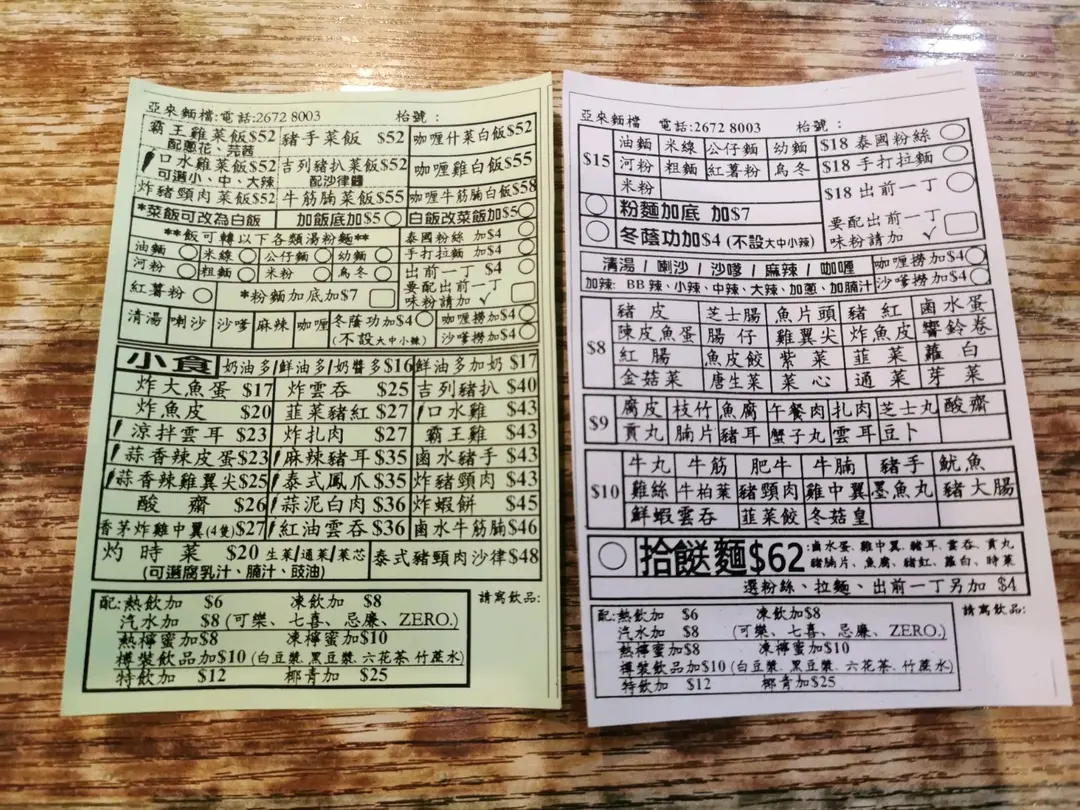 亞來麵檔:電話:2672 8003 枱號：
霸王雞菜飯$52 豬手菜飯 $52 咖喱什菜白飯$52
配蔥花、芫茜
口水雞菜飯$52 吉列豬扒菜飯$52 咖喱雞白飯$55
可選小、中、大辣 配沙律醬
炸豬頸肉菜飯$52 牛筋腩菜飯$55 咖喱牛筋腩白飯$58
*菜飯可改為白飯 加飯底加$5 白飯改菜飯加$5
**飯可轉以下各類湯粉麵** 泰國粉絲 加$4
油麵 米線 公仔麵 幼麵 手打拉麵 加$4
河粉 粗麵 米粉 烏冬 出前一丁 $4
紅薯粉 *粉麵加底加$7 要配出前一丁
味粉請加 ✓
清湯 喇沙 沙嗲 麻辣 咖喱 冬蔭功加$4 咖喱撈加$4
(不設大中小辣) 沙嗲撈加$4
小食 奶油多/鮮油多/奶醬多$16 鮮油多加奶 $17
炸大魚蛋 $17 炸雲吞 $25 吉列豬扒 $40
炸魚皮 $20 韮菜豬紅 $27 口水雞 $43
涼拌雲耳 $23 炸扎肉 $27 霸王雞 $43
蒜香辣皮蛋$23 麻辣豬耳$35 鹵水豬手 $43
蒜香辣雞翼尖$25 泰式鳳爪$35 炸豬頸肉 $43
酸齋 $26 蒜泥白肉$36 炸蝦餅 $45
香茅炸雞中翼(4隻)$27 紅油雲吞$36 鹵水牛筋腩$46
灼時菜 $20 生菜/通菜/菜芯 泰式豬頸肉沙律$48
(可選腐乳汁、腩汁、豉油)
配:熱飲加 $6 凍飲加 $8 請寫飲品:
汽水加 $8 (可樂、七喜、忌廉、ZERO.)
熱檸蜜加$8 凍檸蜜加$10
樽裝飲品加$10 (白豆漿.黑豆漿.六花茶.竹蔗水)
特飲加 $12 椰青加 $25
亞來麵檔 電話:2672 8003 枱號：
$15 油麵 米線 公仔麵 幼麵 $18 泰國粉絲
河粉 粗麵 紅薯粉 烏冬 $18 手打拉麵
米粉 $18 出前一丁
粉麵加底 加$7 要配出前一丁
冬蔭功加$4 (不設大中小辣) 味粉請加 ✓
清湯 / 喇沙 / 沙嗲 / 麻辣 / 咖喱 咖喱撈加$4
加辣: BB辣、小辣、中辣、大辣、加蔥、加腩汁 沙嗲撈加$4
$8 豬皮 芝士腸 魚片頭 豬紅 鹵水蛋
陳皮魚蛋 腸仔 雞翼尖 炸魚皮 響鈴卷
紅腸 魚皮餃 紫菜 韮菜 蘿白
金菇菜 唐生菜 菜心 通菜 芽菜
$9 腐皮 枝竹 魚腐 午餐肉 扎肉 芝士丸 酸齋
貢丸 腩片 豬耳 蟹子丸 雲耳 豆卜
$10 牛丸 牛筋 肥牛 牛腩 豬手 魷魚
雞絲 牛柏葉 豬頸肉 雞中翼 墨魚丸 豬大腸
鮮蝦雲吞 韮菜餃 冬菇皇
拾餸麵$62 :鹵水蛋、雞中翼、豬耳、雲吞、貢丸
豬腩片、魚腐、豬紅、蘿白、時菜
選粉絲、拉麵、出前一丁另加 $4
配:熱飲加 $6 凍飲加$8 請寫飲品:
汽水加 $8 (可樂、七喜、忌廉、ZERO.)
熱檸蜜加$8 凍檸蜜加$10
樽裝飲品加$10 (白豆漿.黑豆漿.六花茶.竹蔗水)
特飲加 $12 椰青加$25